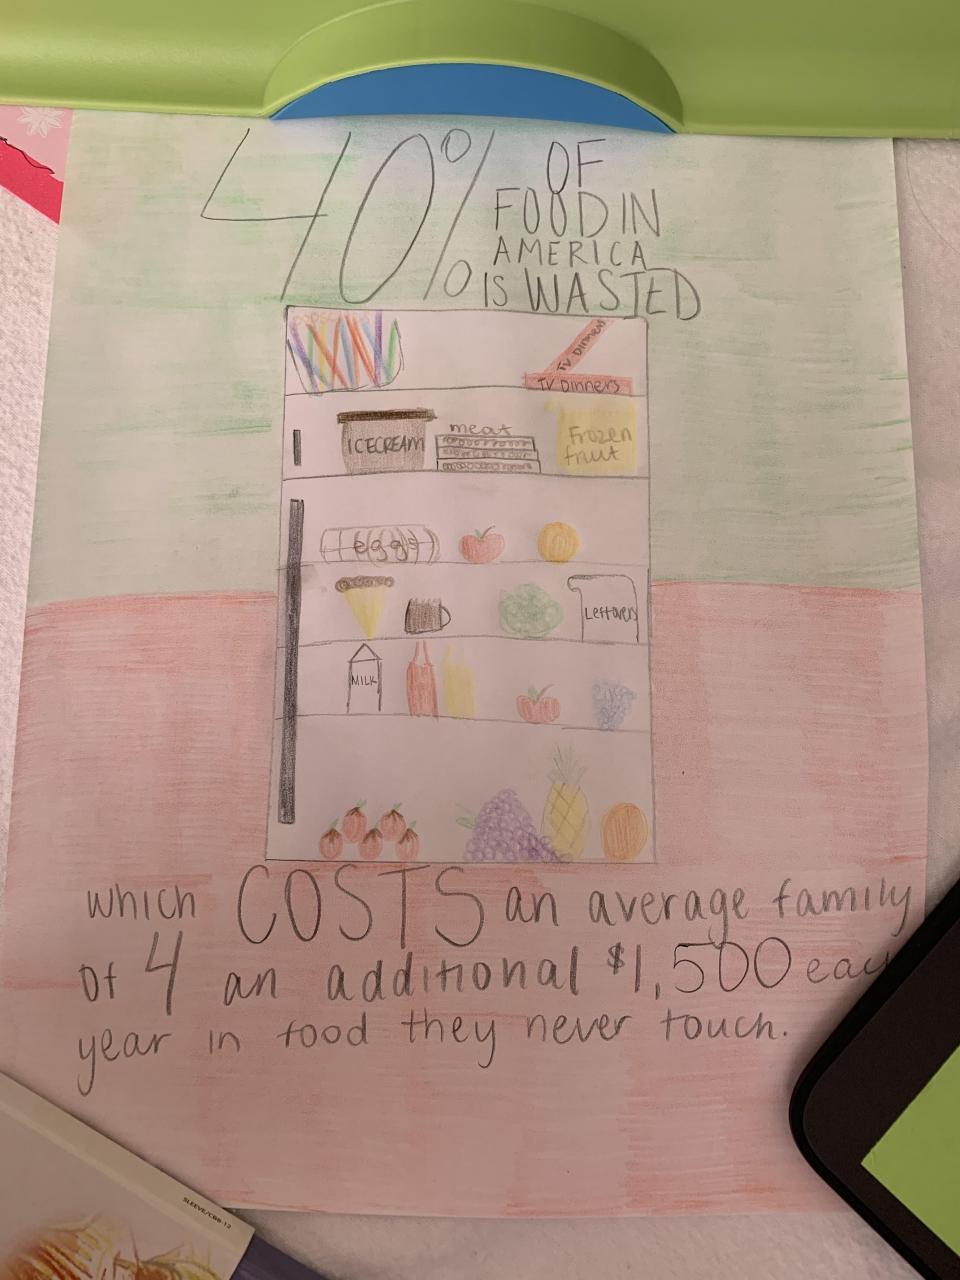 40% OF
FOOD IN
AMERICA
IS WASTED
POPSICLES
TV Dinners
TV Dinners
ICECREAM
meat
Frozen
fruit
eggs
Leftovers
MILK
which COSTS an average family
of 4 an additional $1,500 each
year in food they never touch.
SLEEVE/CBB-12